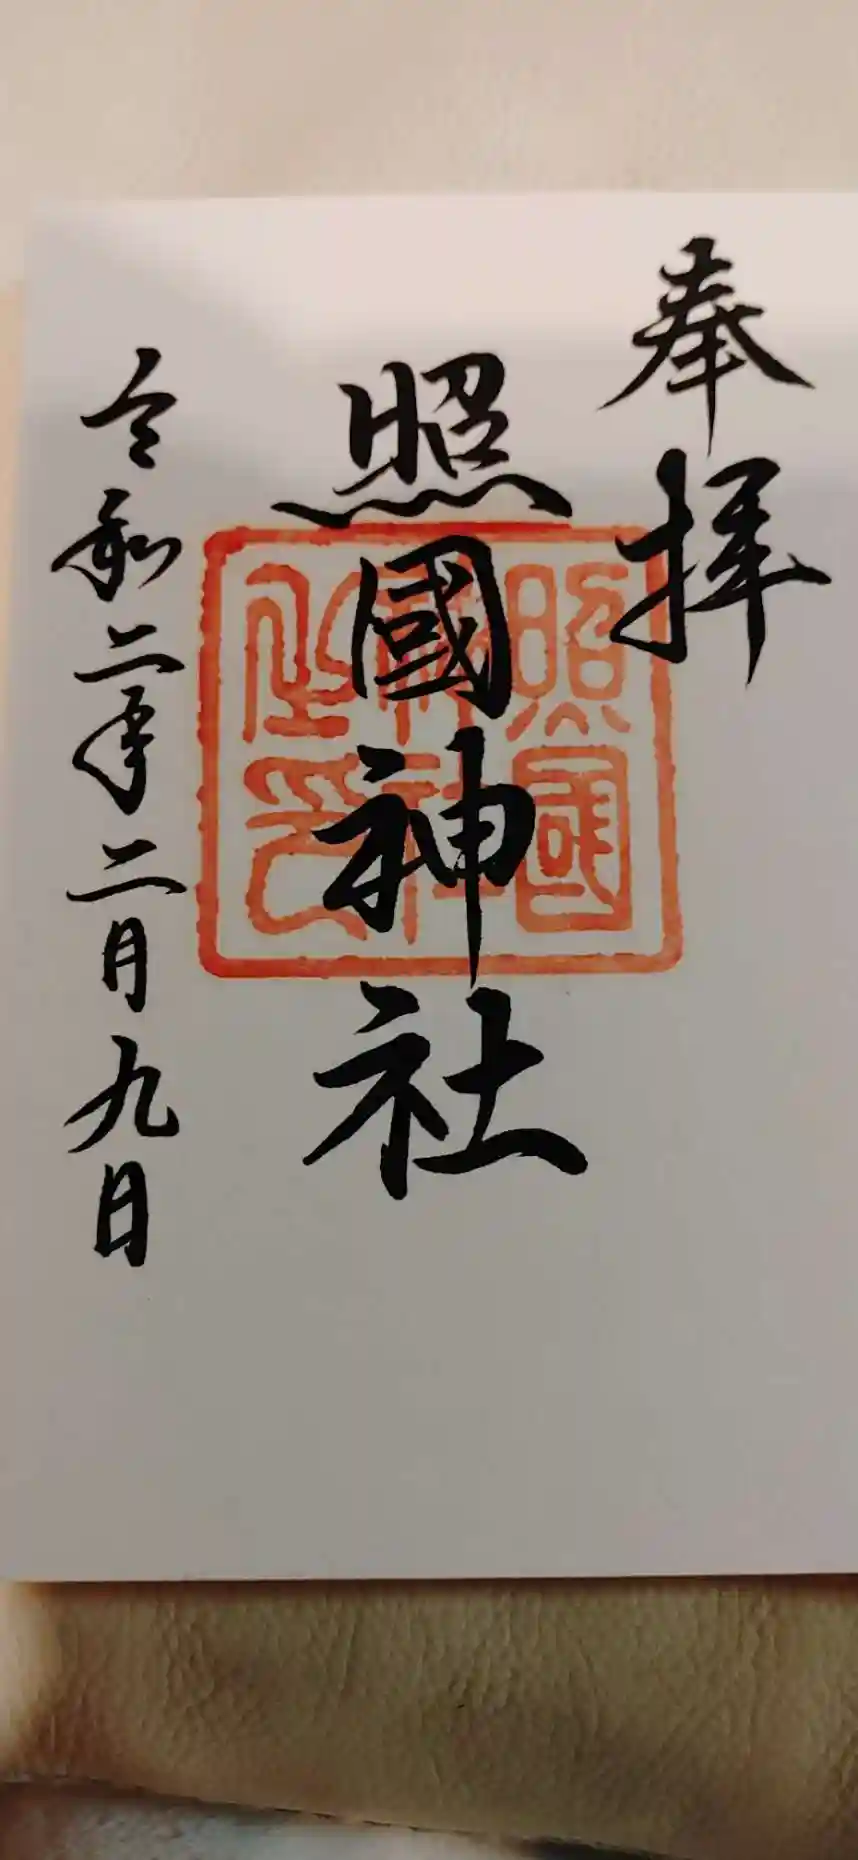 奉拝
照國神社
照國神社之印
令和二年二月九日